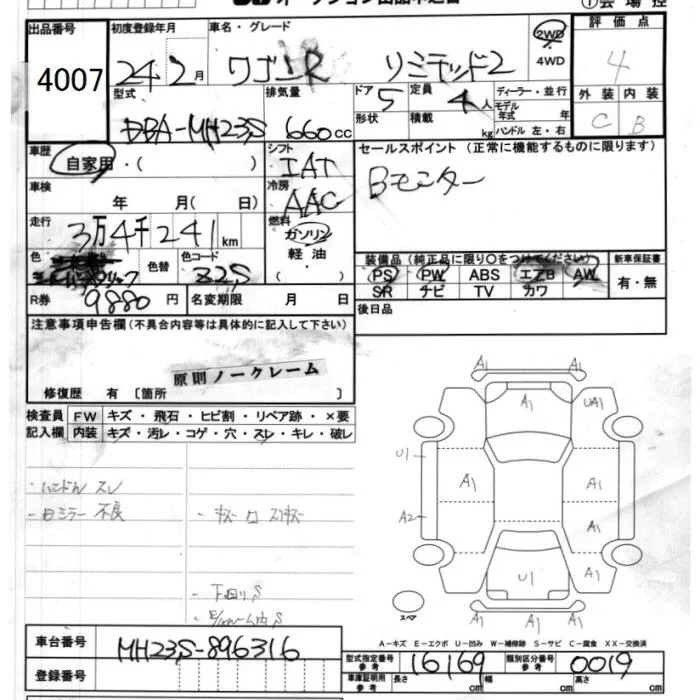 ①会場控
出品番号 初度登録年月 車名・グレード 2WD 評価点
4007 24年2月 ワゴンR リミテッド2 4WD 4
型式 排気量 ドア 5 定員 4人 ディーラー・並行 外装 内装
DBA-MH23S 660cc 形状 積載 kg モデル年式 年 ハンドル 左・右 C B
車歴 自家用・( ) シフト IAT セールスポイント (正常に機能するものに限ります)
車検 年 月( 日) 冷房 AAC Bモニター
走行 3万4千241km 燃料 ガソリン
色 色替 色コード Z2S 軽油 ・( )
装備品 (純正品に限り○をつけてください) 新車保証書
PS PW ABS エアB AW 有・無
SR ナビ TV カワ
R券 9880円 名変期限 月 日 後日品
注意事項申告欄 (不具合内容等は具体的に記入して下さい)
原則ノークレーム
修復歴 有 〔箇所 〕
検査員 FW キズ・飛石・ヒビ割・リペア跡・×要
記入欄 内装 キズ・汚レ・コゲ・穴・スレ・キレ・破レ
A1 A1
A1 UA1
U1 A1 A1
A2 A1
U1 A1
A1 A1 A1
・ハンドル スレ
・日ミラー 不良
・下回り S
スペア
A-キズ E-エクボ U-凹み W-補修跡 S-サビ C-腐食 XX-交換済
車台番号 MH23S-896316
型式指定番号 参考 16169 類別区分番号 参考 0019
登録番号 車庫証明用 参考 長さ cm 幅 cm 高さ cm